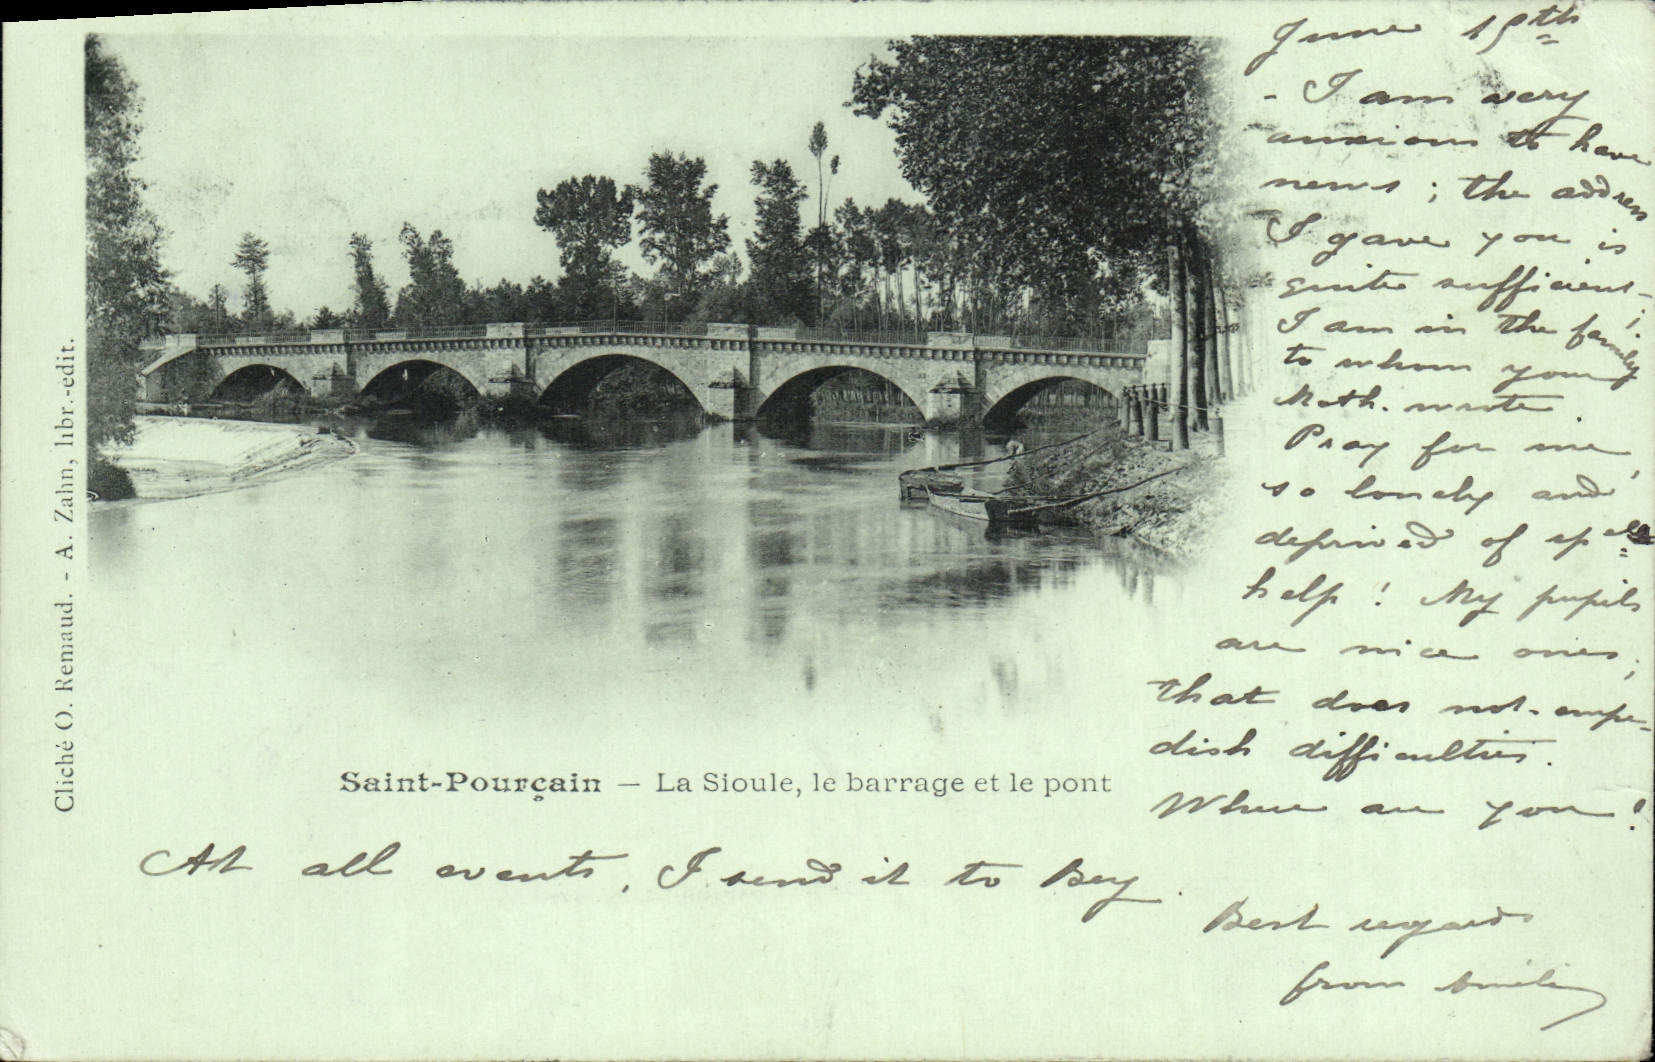 June 19th
- I am very
anxious to have
news ; the address
I gave you is
quite sufficient ;
I am in the family
to whom your
Moth. wrote .
Pray for me,
so lonely and
deprived of
help ! My pupils
are nice ones,
that does not - empe-
dish difficulties.
Where are you !
Cliché O. Remaud. - A. Zahn, libr.-édit.
Saint-Pourçain — La Sioule, le barrage et le pont
At all events, I send it to Bey .
Best regards
from